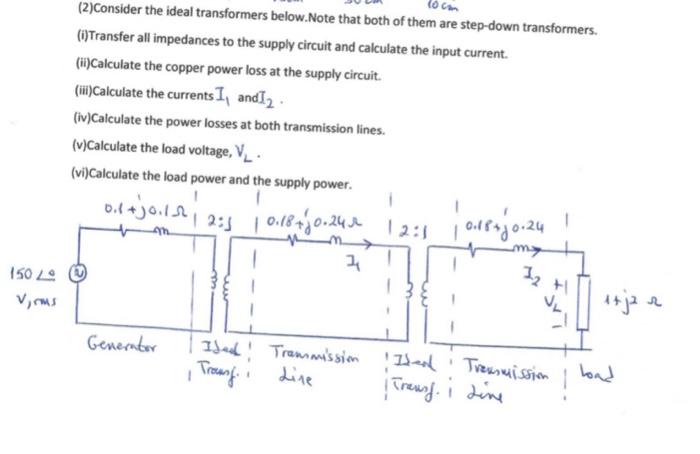 10 cm
(2)Consider the ideal transformers below.Note that both of them are step-down transformers.
(i)Transfer all impedances to the supply circuit and calculate the input current.
(ii)Calculate the copper power loss at the supply circuit.
(iii)Calculate the currents I1 and I2 .
(iv)Calculate the power losses at both transmission lines.
(v)Calculate the load voltage, VL .
(vi)Calculate the load power and the supply power.
0.1+j0.1Ω 2:1 0.18+j0.24Ω 2:1 0.18+j0.24
I1 I2 + VL - 1+j2 Ω
150∠0
V,rms
Generator Ideal Transmission Ideal Transmission Load
Transf. Line Transf. Line